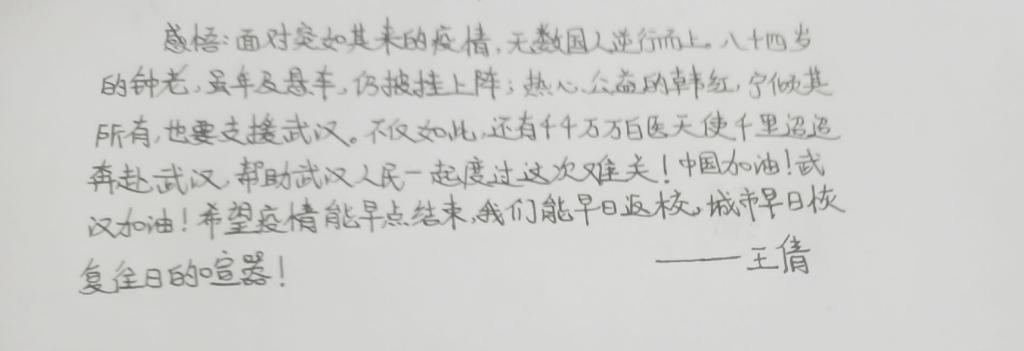 感悟：面对突如其来的疫情，无数国人逆行而上。八十四岁
的钟老，虽年及悬车，仍披挂上阵；热心公益的韩红，宁倾其
所有，也要支援武汉。不仅如此，还有千千万万白医天使千里迢迢
奔赴武汉，帮助武汉人民一起度过这次难关！中国加油！武
汉加油！希望疫情能早点结束，我们能早日返校，城市早日恢
复往日的喧嚣！
——王倩